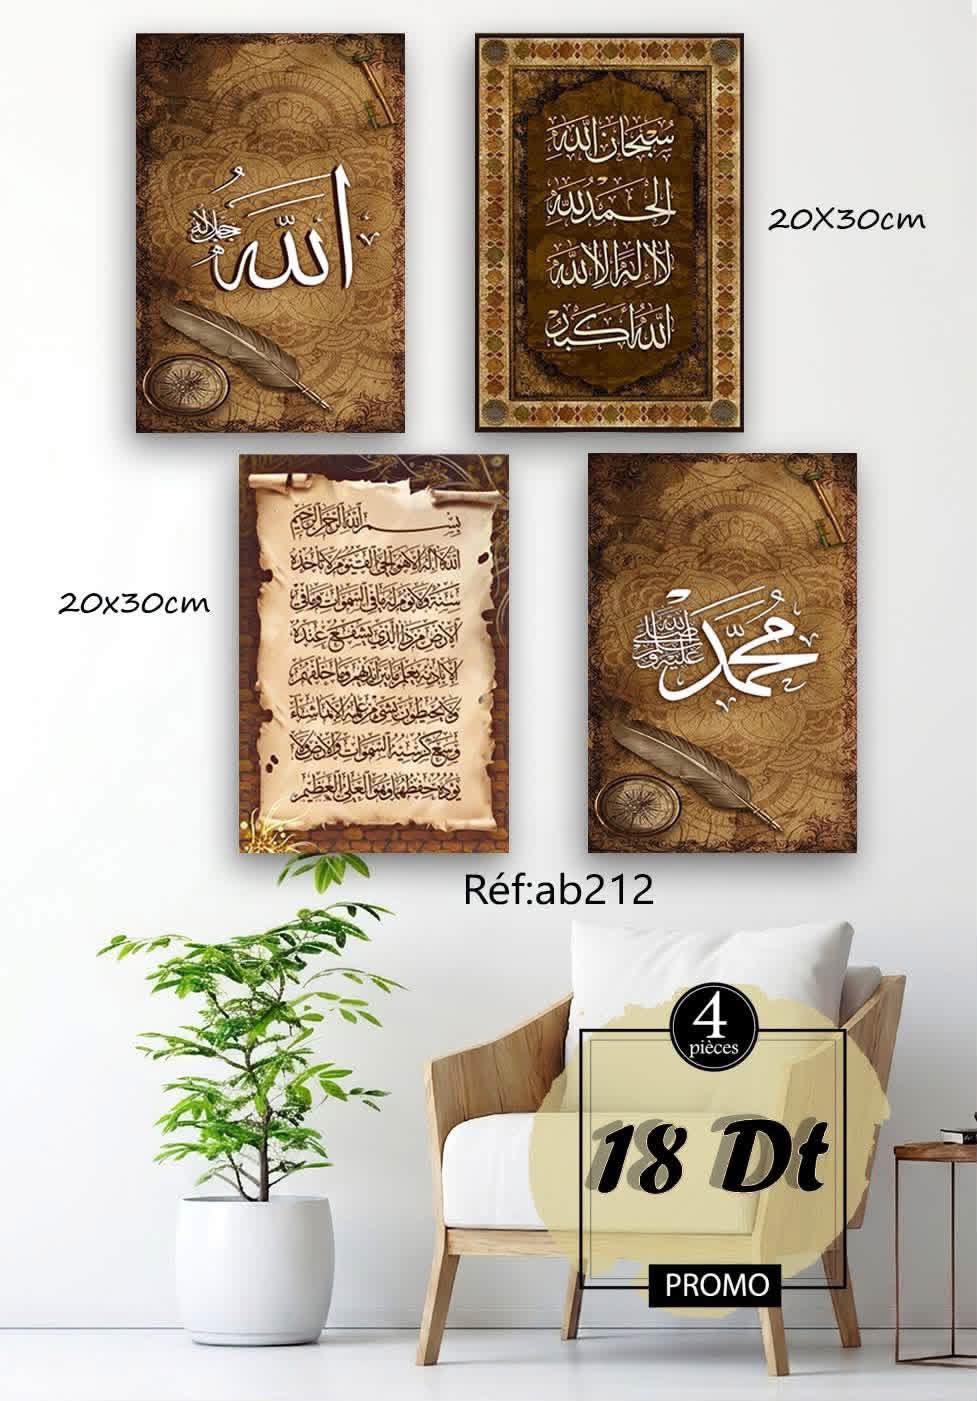 الله
جل جلاله
سبحان الله
الحمد لله
لا إله إلا الله
الله أكبر
20X30cm
بسم الله الرحمن الرحيم
الله لا إله إلا هو الحي القيوم لا تأخذه
سنة ولا نوم له ما في السموات وما في
الأرض من ذا الذي يشفع عنده
إلا بإذنه يعلم ما بين أيديهم وما خلفهم
ولا يحيطون بشيء من علمه إلا بما شاء
وسع كرسيه السموات والأرض ولا
يؤده حفظهما وهو العلي العظيم
20x30cm
محمد
صلى الله عليه وسلم
Réf:ab212
4
pièces
18 Dt
PROMO